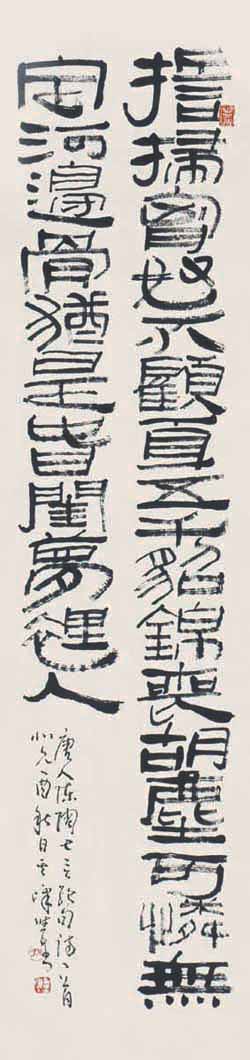 誓掃匈奴不顧身五千貂錦喪胡塵可憐無
定河邊骨猶是春閨夢裡人
唐人陳陶七言絕句詩一首
酉秋日